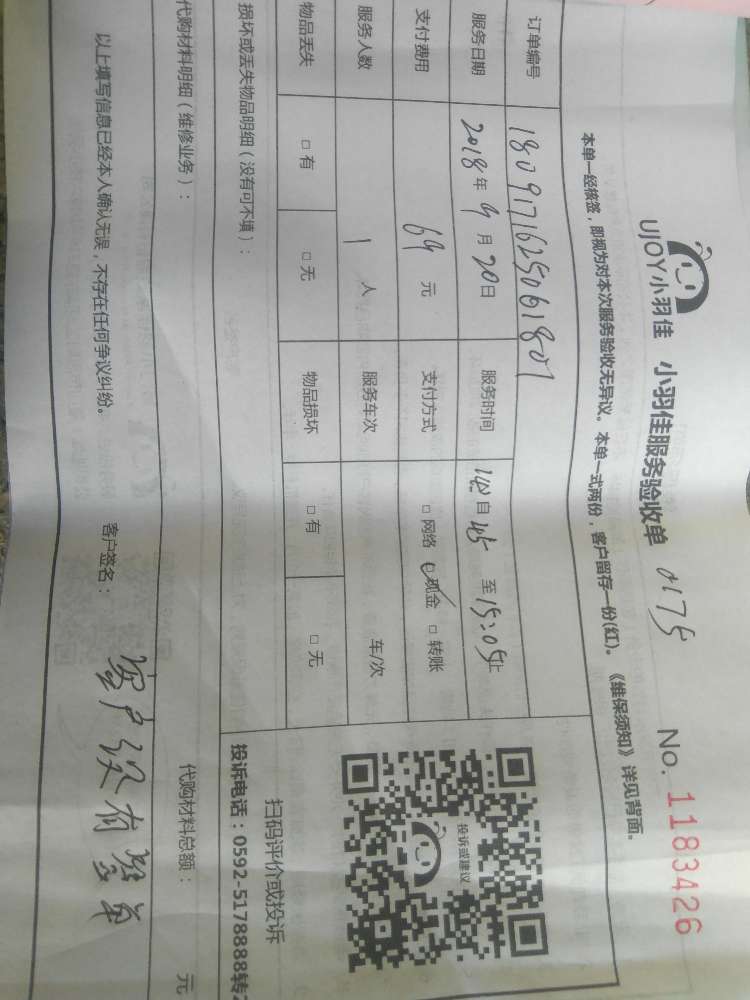 UJOY小羽佳 小羽佳服务验收单 0175 No. 1183426
本单一经核签，即视为对本次服务验收无异议。本单一式两份，客户留存一份(红)。《维保须知》详见背面。
订单编号 1809171625061807
服务日期 2018年9月20日 服务时间 自 至15:05止
支付费用 69元 支付方式 □网络 ☑现金 □转账
服务人数 1人 服务车次 车/次
物品丢失 □有 □无 物品损坏 □有 □无
投诉或建议
扫码评价或投诉
损坏或丢失物品明细（没有可不填）：
投诉电话：0592-5178888转2
代购材料明细（维修业务）： 代购材料总额： 元
以上填写信息已经本人确认无误，不存在任何争议纠纷。 客户签名： 客户没有签单